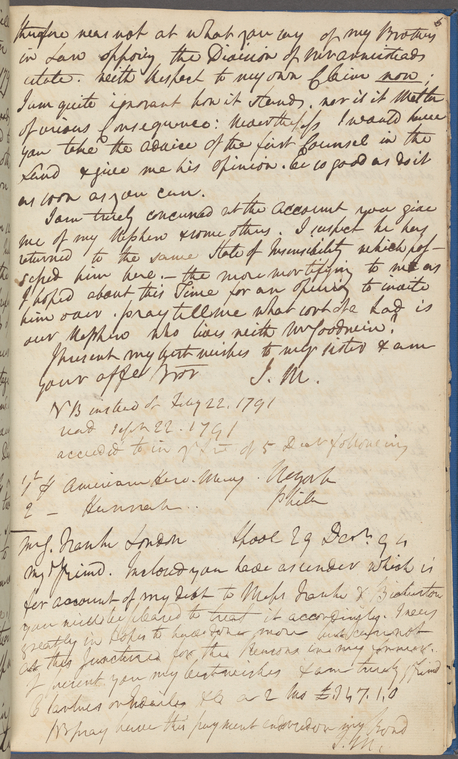 6
therefore was not at what you say of my Brothers
in Law opposing the Division of
estate. with Respect to my own Claim now;
I am quite ignorant how it stands. nor is it Matter
of serious Consequence: Nevertheless I would have
you take the advice of the first Counsel in the
Land & give me his opinion. be so good as do it
as soon as you can.
I am truly concerned at the Account you give
me of my Nephew & some others. I suspect he has
returned to the same State of Insensibility which pos-
sessed him here. – the more mortifying to me as
I hoped about this Time for an opening to invite
him over. pray tell me what sort of a Lad is
our Nephew who lives with Mr Goodwin?
I present my best wishes to my sister & am
your affee Bror J. M.
NB instead of July 22. 1791
read Sept 22. 1791
acceded to in of 5 Decr following
1st American Hero. New York
2 – Hannah.. Phila
My friend. Inclosed you have which is
for account of my Debt to Messrs &
you will be pleased to treat it accordingly. I was
greatly in hopes to have more
at this Juncture for the Reasons
I present you my best wishes & am truly yr friend
a 2 Ms £ 147.1.0
NB pray have this payment on my Bond
J. M.